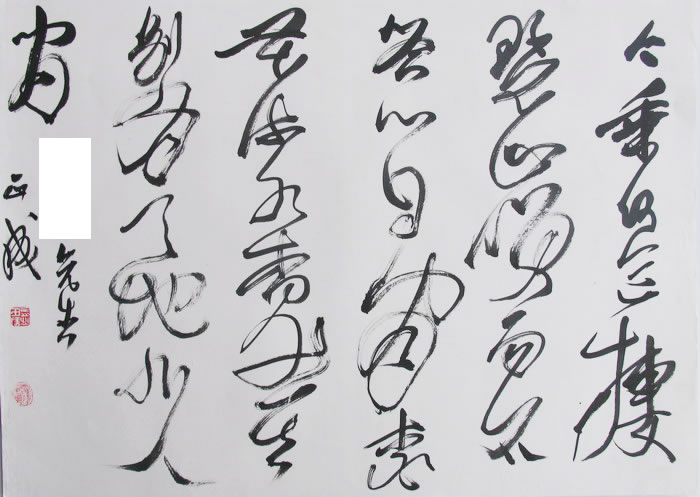 问余何意棲
碧山笑而不
答心自閑桃
花流水杳然去
别有天地非人
間
先生
正成